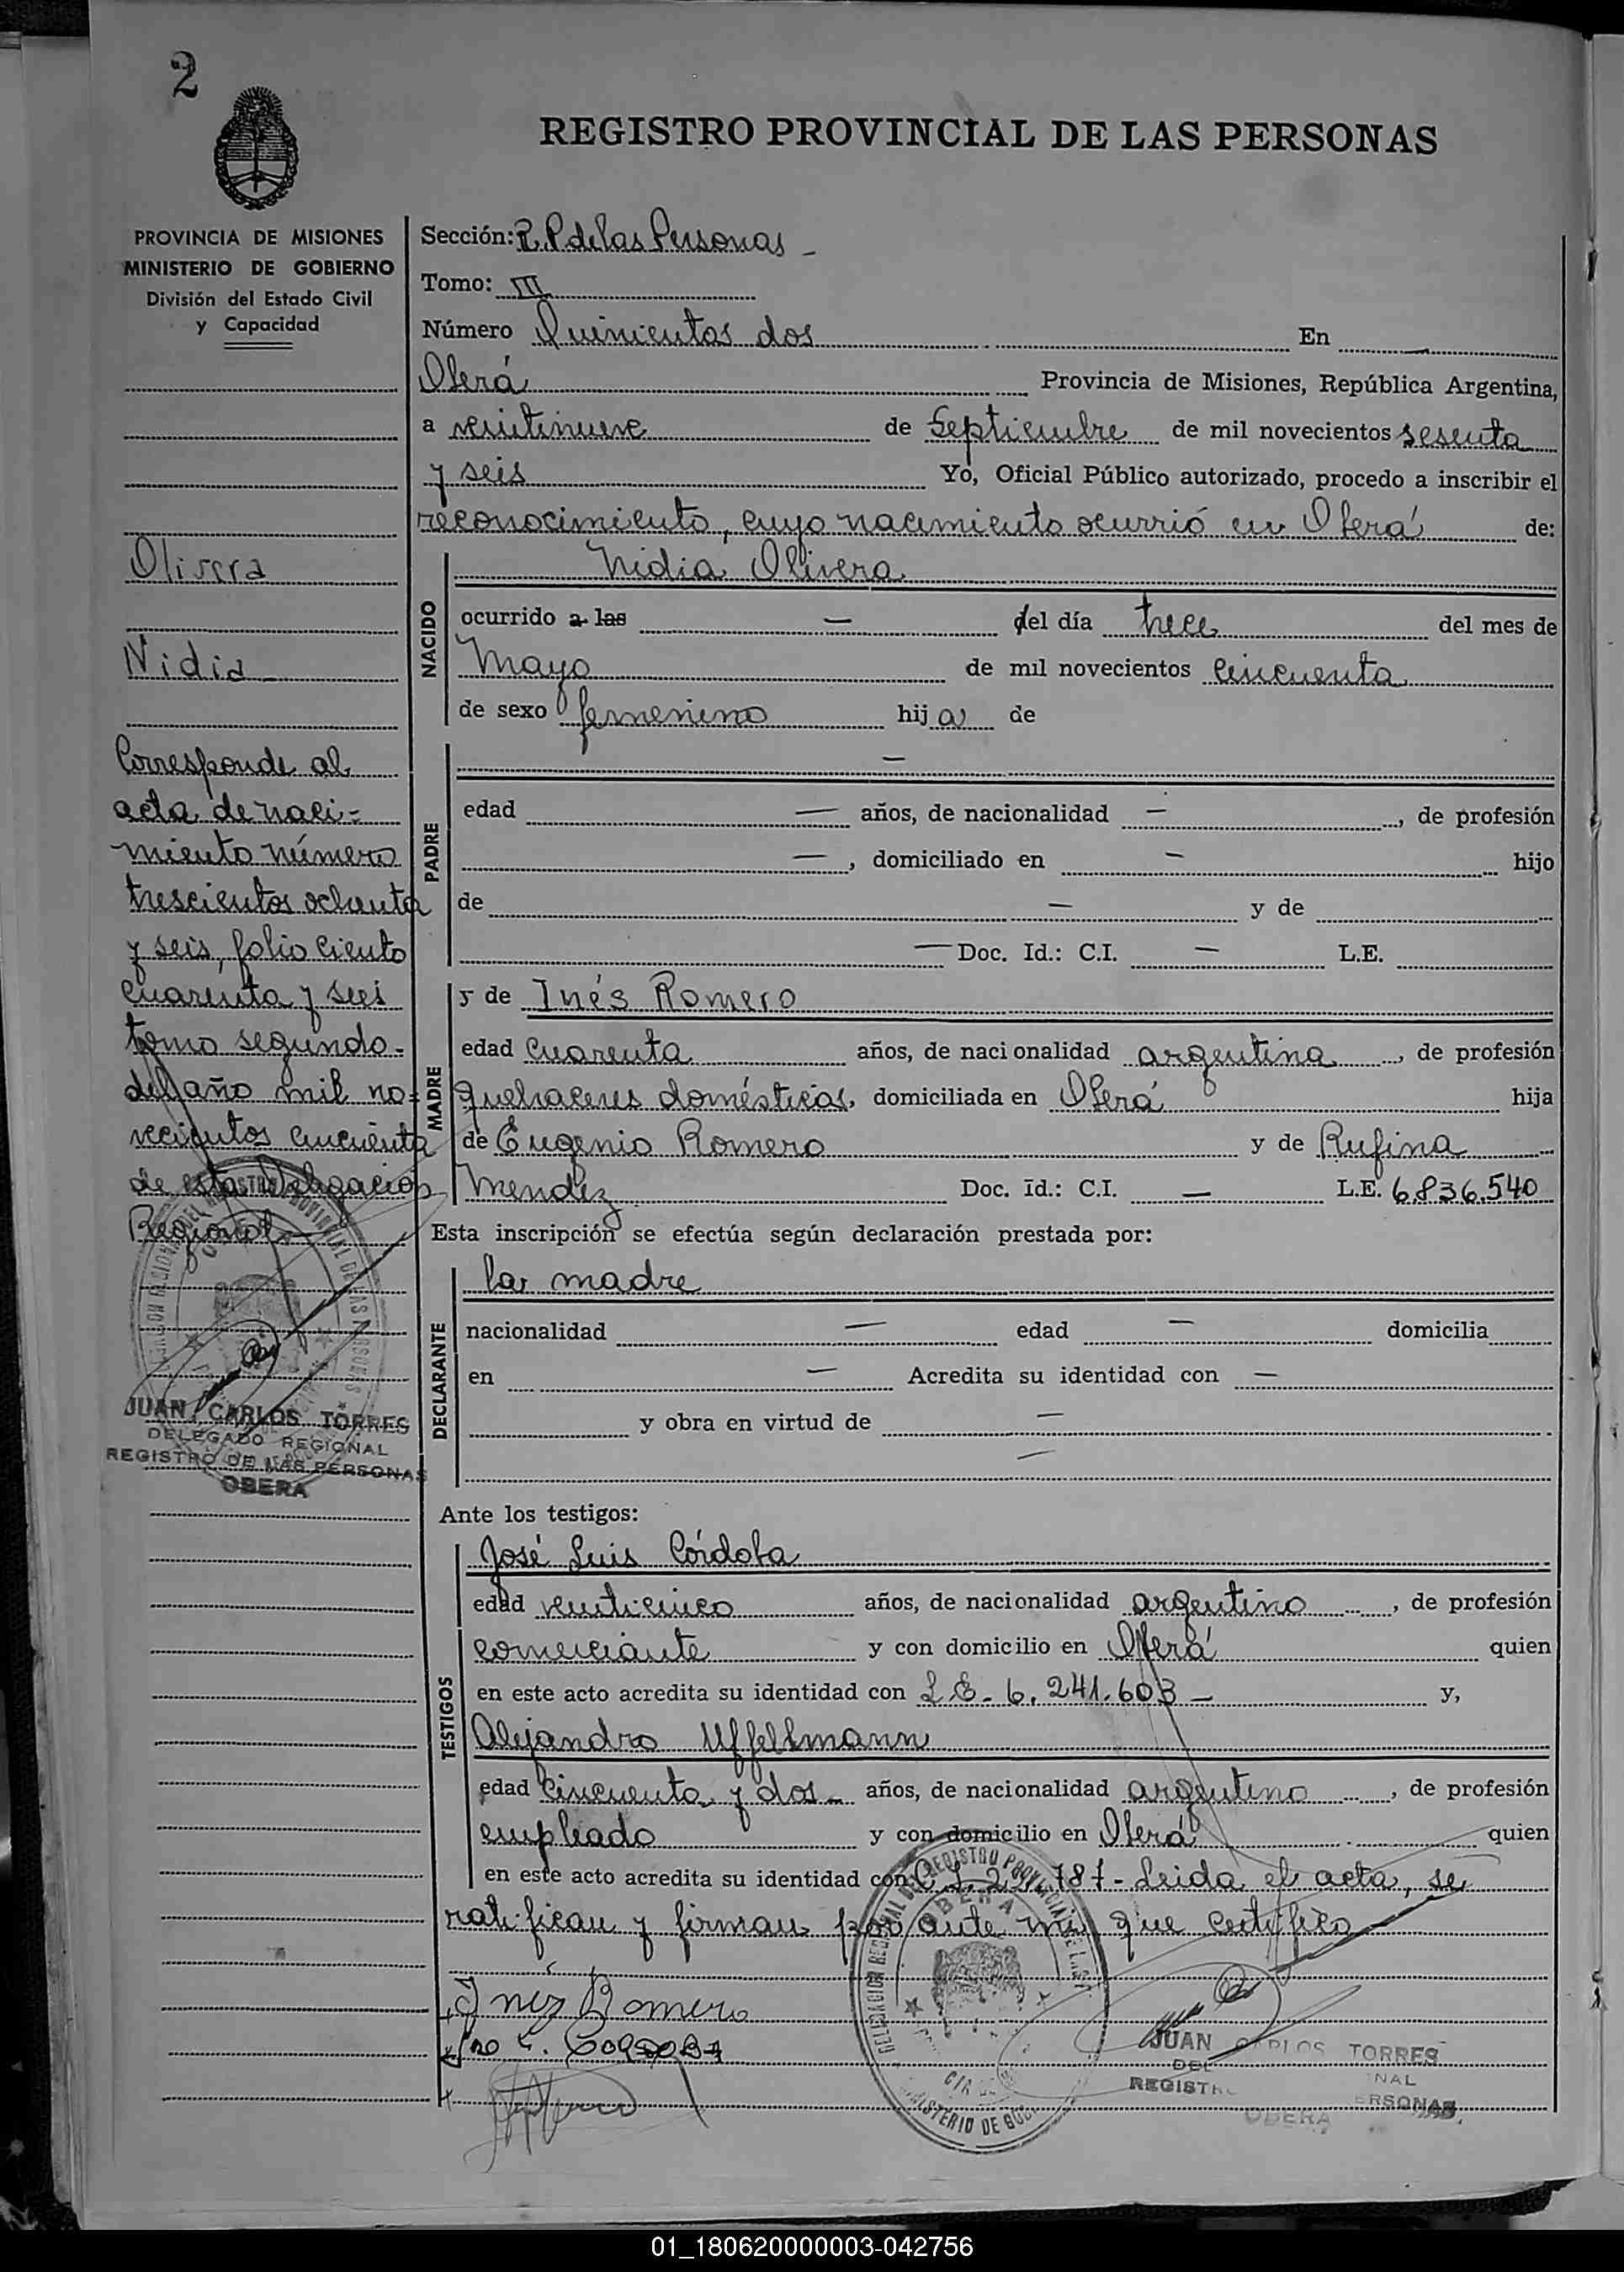 2
REGISTRO PROVINCIAL DE LAS PERSONAS
PROVINCIA DE MISIONES
MINISTERIO DE GOBIERNO
División del Estado Civil
y Capacidad
Olivera
Nidia
Corresponde al
acta de naci=
miento número
trescientos ochenta
y seis, folio ciento
cuarenta y seis
tomo segundo
del año mil no=
vecientos cincuenta
de esta Delegación
Regional
JUAN CARLOS TORRES
DELEGADO REGIONAL
REGISTRO DE LAS PERSONAS
OBERA
Sección: R.P. de las Personas -
Tomo: III
Número Quinientos dos En
Oberá Provincia de Misiones, República Argentina,
a veintinueve de Septiembre de mil novecientos sesenta
y seis Yo, Oficial Público autorizado, procedo a inscribir el
reconocimiento, cuyo nacimiento ocurrió en Oberá de:
NACIDO
Nidia Olivera
ocurrido a las — del día trece del mes de
Mayo de mil novecientos cincuenta
de sexo femenino hija de
PADRE
—
edad — años, de nacionalidad —, de profesión
—, domiciliado en — hijo
de — y de
— Doc. Id.: C.I. — L.E.
MADRE
y de Inés Romero
edad cuarenta años, de nacionalidad argentina, de profesión
quehaceres domésticos, domiciliada en Oberá hija
de Eugenio Romero y de Rufina
Mendez Doc. Id.: C.I. — L.E. 6.836.540
Esta inscripción se efectúa según declaración prestada por:
DECLARANTE
la madre
nacionalidad — edad — domicilia
en — Acredita su identidad con —
y obra en virtud de —
—
Ante los testigos:
TESTIGOS
José Luis Córdoba
edad veinticinco años, de nacionalidad argentino, de profesión
comerciante y con domicilio en Oberá quien
en este acto acredita su identidad con L.E. 6.241.603 — y,
Alejandro Uffellmann
edad cincuenta y dos - años, de nacionalidad argentino, de profesión
empleado y con domicilio en Oberá quien
en este acto acredita su identidad con C.I. - Leida el acta, se
ratifican y firman por ante mi que certifico
Inéz Romero
JUAN CARLOS TORRES
OBERA
01_180620000003-042756